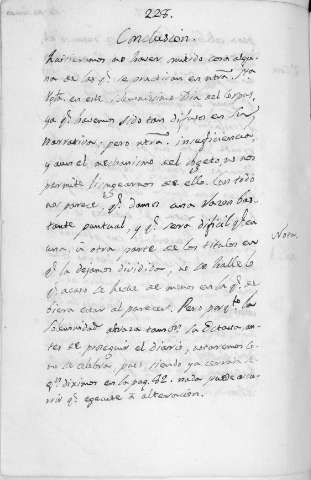 223.
Conclusion.
Quisieramos no haver omitido cosa algu-
na de las q.e se practican en ntra. Sta.
Ygla. en este solemnisimo Dia del Corpus,
ya q.e havemos sido tan difusos en su
narrativa; pero ntra. insuficiencia,
y aun el mechanismo del objeto, no nos
permite lisongearnos de ello. Con todo
nos parece, q.e damos una razon bas-
tante puntual, y q.e sera dificil q.e en
una, ù otra parte de los titulos en
q.e la dejamos dividida, no se halle lo
q.e acaso se heche de menos en la q.e de-
biera estar al parecer. Pero por q.to la
solemnidad abraza tamb.n la Octava, an-
tes de proseguir el Diario, notaremos co-
mo se celebra, pues siendo ya cerrada
q.e diximos en la pag. 42. nada puede ocu-
rrir q.e egecute à alteracion.
Nota.